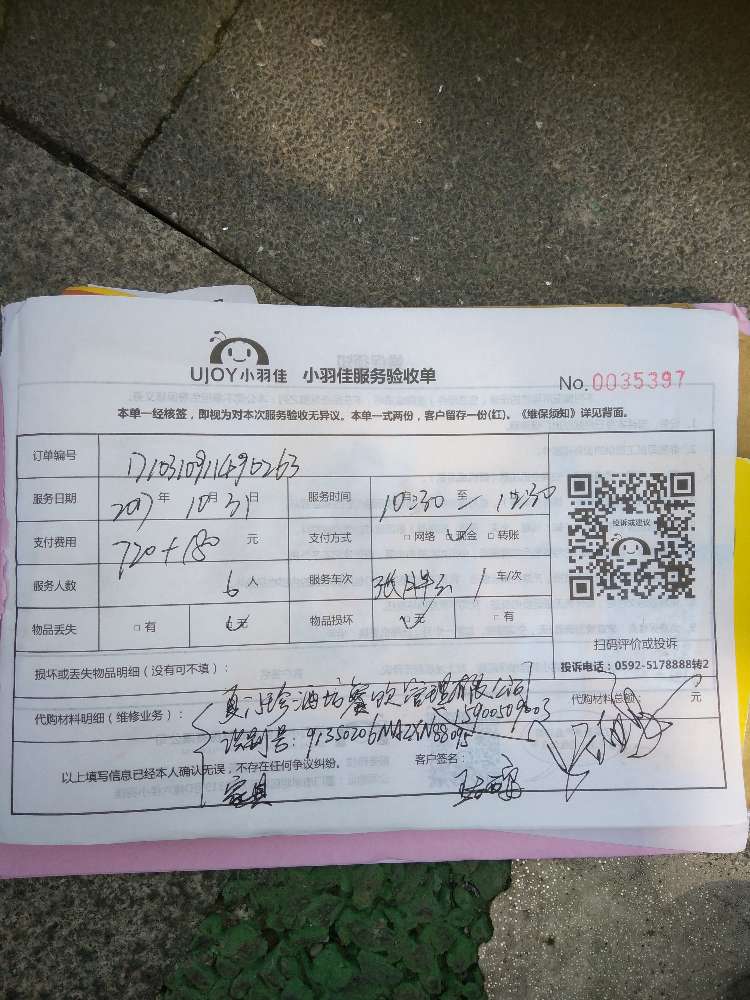 UJOY小羽佳 小羽佳服务验收单
No.0035397
本单一经核签，即视为对本次服务验收无异议。本单一式两份，客户留存一份(红)、《维保须知》详见背面。
订单编号 171031091149 0263
服务日期 2017年 10月 31日 服务时间 10:30 至
支付费用 720+180 元 支付方式 □ 网络 ☑ 现金 □ 转账
服务人数 6 人 服务车次 1 车/次
物品丢失 □ 有 ☑ 无 物品损坏 ☑ 无 □ 有
投诉或建议
扫码评价或投诉
投诉电话：0592-5178888转2
损坏或丢失物品明细（没有可不填）：
代购材料明细（维修业务）： 管理有限公司 代购材料总额： 元
识别号：91350206MA2XN88095 15900509003
以上填写信息已经本人确认无误，不存在任何争议纠纷。 客户签名：
家具